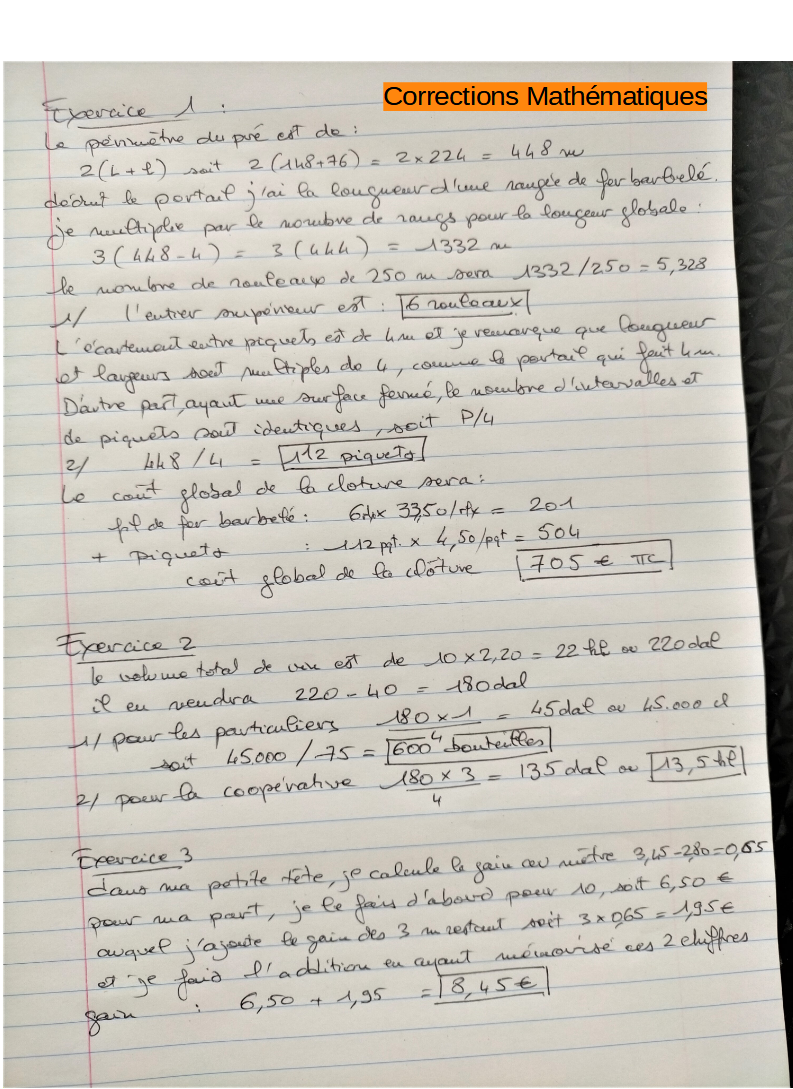 Corrections Mathématiques
Exercice 1 :
Le périmètre du pré est de :
2(L+l) soit 2(148+76) = 2x224 = 448 m
déduit le portail j'ai la longueur d'une rangée de fer barbelé.
je multiplie par le nombre de rangs pour la longeur globale :
3(448-4) = 3(444) = 1332 m
le nombre de rouleaux de 250 m sera 1332/250 = 5,328
1/ l'entier supérieur est : 6 rouleaux
L'écartement entre piquets est de 4m et je remarque que longueur
et largeurs sont multiples de 4, comme le portail qui fait 4m.
D'autre part, ayant une surface fermé, le nombre d'intervalles et
de piquets sont identiques, soit P/4
2/ 448/4 = 112 piquets
Le coût global de la cloture sera :
fil de fer barbelé : 6rlx x 33,50/rlx = 201
+ piquets : 112 pqt. x 4,50/pqt = 504
coût global de la clôture 705 € TTC
Exercice 2
le volume total de vin est de 10 x 2,20 = 22 hl ou 220 dal
il en vendra 220 - 40 = 180 dal
1/ pour les particuliers 180 x 1 = 45 dal ou 45.000 cl
4
soit 45000 / 75 = 600 bouteilles
2/ pour la coopérative 180 x 3 = 135 dal ou 13,5 hl
4
Exercice 3
dans ma petite tête, je calcule le gain au mètre 3,45-2,80=0,65
pour ma part, je le fais d'abord pour 10, soit 6,50 €
auquel j'ajoute le gain des 3 m restant soit 3 x 0,65 = 1,95 €
et je fais l'addition en ayant mémorisé ces 2 chiffres
gain : 6,50 + 1,95 = 8,45 €